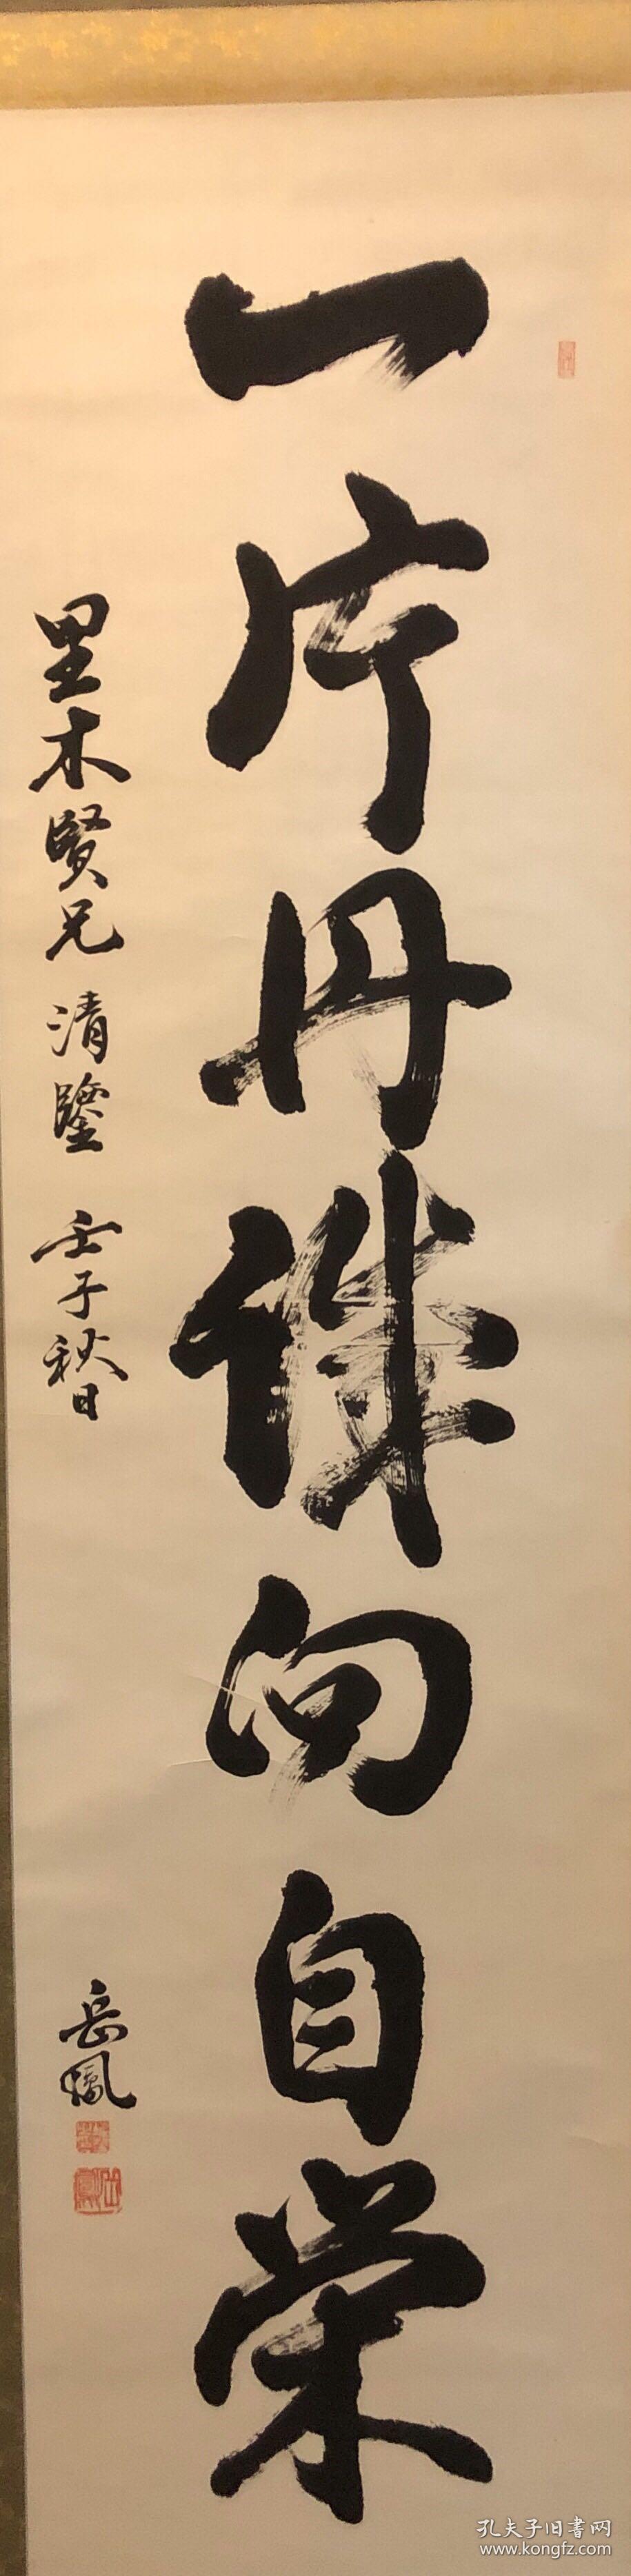 一片丹誠向自栄
里木賢兄清鑒 壬子秋日
岳鳳
孔夫子旧書网
www.kongfz.com